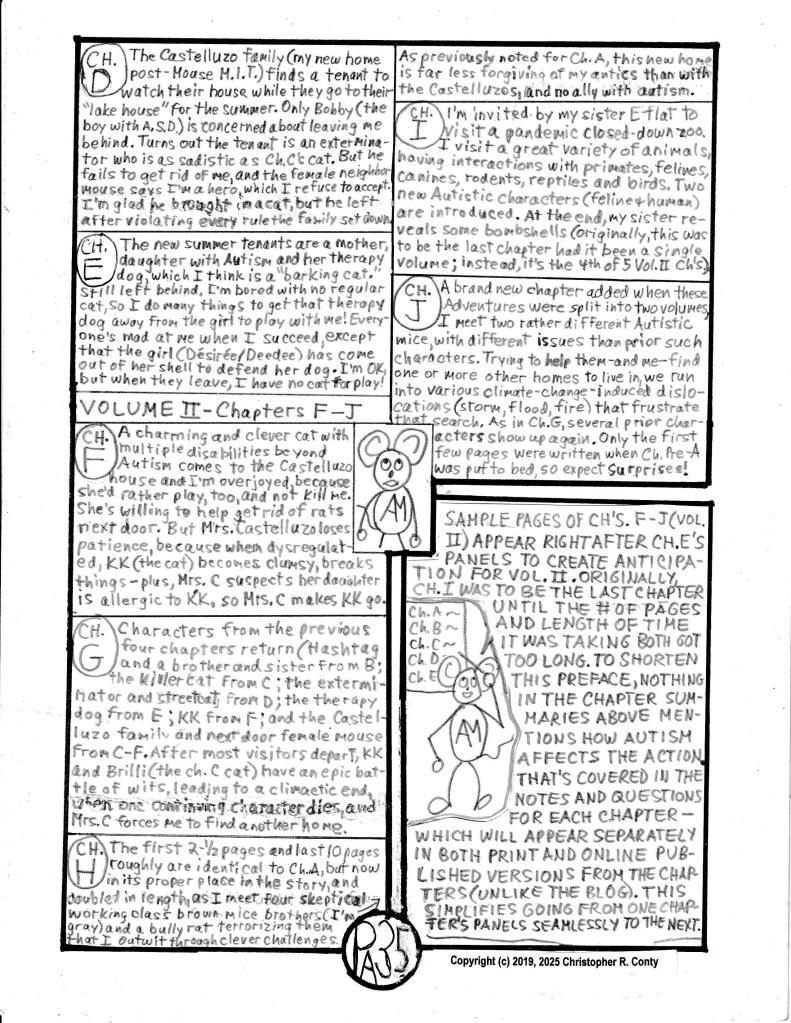 CH. D
The Castelluzo family (my new home
post-Mouse M.I.T.) finds a tenant to
watch their house while they go to their
"lake house" for the summer. Only Bobby (the
boy with A.S.D.) is concerned about leaving me
behind. Turns out the tenant is an extermina-
tor who is as sadistic as Ch.C's cat. But he
fails to get rid of me, and the female neighbor
mouse says I'm a hero, which I refuse to accept.
I'm glad he brought in a cat, but he left
after violating every rule the family set down.
CH. E
The new summer tenants are a mother,
daughter with Autism and her therapy
dog, which I think is a "barking cat."
Still left behind, I'm bored with no regular
cat, so I do many things to get that therapy
dog away from the girl to play with me! Every-
one's mad at me when I succeed, except
that the girl (Désirée/Deedee) has come
out of her shell to defend her dog. I'm OK,
but when they leave, I have no cat for play!
VOLUME II-Chapters F-J
CH. F
A charming and clever cat with
multiple disabilities beyond
Autism comes to the Castelluzo
house and I'm overjoyed, because
she'd rather play, too, and not kill me.
She's willing to help get rid of rats
next door. But Mrs. Castelluzo loses
patience, because when dysregulat-
ed, KK (the cat) becomes clumsy, breaks
things-plus, Mrs. C suspects her daughter
is allergic to KK, so Mrs. C makes KK go.
CH. G
Characters from the previous
four chapters return (Hashtag
and a brother and sister from B;
the killer cat from C; the extermi-
nator and streetcat from D; the therapy
dog from E; KK from F; and the Castel-
luzo family and next door female mouse
from C-F. After most visitors depart, KK
and Brilli (the ch. C cat) have an epic bat-
tle of wits, leading to a climactic end,
when one continuing character dies, and
Mrs. C forces me to find another home.
CH. H
The first 2-½ pages and last 10 pages
roughly are identical to Ch.A, but now
in its proper place in the story, and
doubled in length, as I meet four skeptical
working class brown mice brothers (I'm
gray) and a bully rat terrorizing them
that I outwit through clever challenges.
As previously noted for Ch.A, this new home
is far less forgiving of my antics than with
the Castelluzos, and no ally with autism.
CH. I
I'm invited by my sister E flat to
visit a pandemic closed-down zoo.
I visit a great variety of animals,
having interactions with primates, felines,
canines, rodents, reptiles and birds. Two
new Autistic characters (feline & human)
are introduced. At the end, my sister re-
veals some bombshells (originally, this was
to be the last chapter had it been a single
volume; instead, it's the 4th of 5 Vol. II Ch's)
CH. J
A brand new chapter added when these
Adventures were split into two volumes,
I meet two rather different Autistic
mice, with different issues than prior such
characters. Trying to help them-and me-find
one or more other homes to live in, we run
into various climate-change-induced dislo-
cations (storm, flood, fire) that frustrate
that search. As in Ch.G, several prior char-
acters show up again. Only the first
few pages were written when Ch. Pre-A
was put to bed, so expect surprises!
AM
SAMPLE PAGES OF CH'S. F-J (VOL.
II) APPEAR RIGHT AFTER CH.E'S
PANELS TO CREATE ANTICIPA-
TION FOR VOL. II. ORIGINALLY,
CH. I WAS TO BE THE LAST CHAPTER
UNTIL THE # OF PAGES
AND LENGTH OF TIME
IT WAS TAKING BOTH GOT
TOO LONG. TO SHORTEN
THIS PREFACE, NOTHING
IN THE CHAPTER SUM-
MARIES ABOVE MEN-
TIONS HOW AUTISM
AFFECTS THE ACTION.
THAT'S COVERED IN THE
NOTES AND QUESTIONS
FOR EACH CHAPTER-
WHICH WILL APPEAR SEPARATELY
IN BOTH PRINT AND ONLINE PUB-
LISHED VERSIONS FROM THE CHAP-
TERS (UNLIKE THE BLOG). THIS
SIMPLIFIES GOING FROM ONE CHAP-
TER'S PANELS SEAMLESSLY TO THE NEXT.
Ch. A~
Ch. B~
Ch. C~
Ch. D
Ch. E
AM
P35
Copyright (c) 2019, 2025 Christopher R. Conty